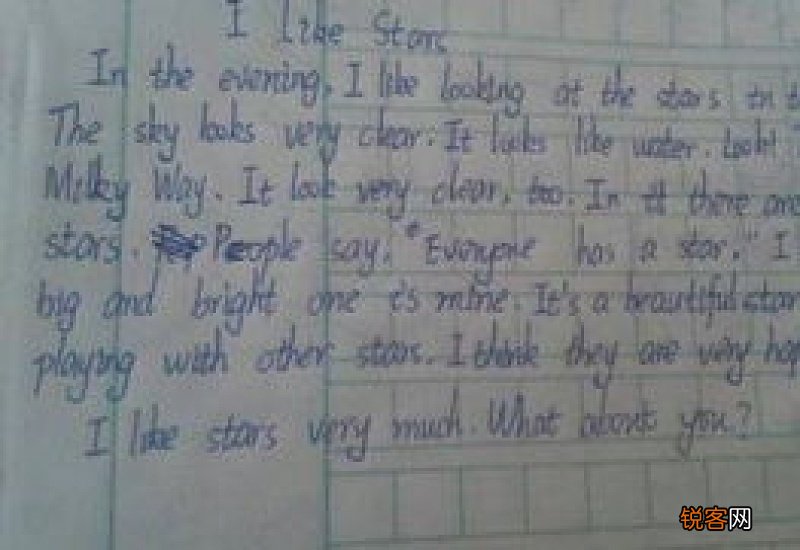 I like Stars
In the evening, I like looking at the stars in
The sky looks very clear. It looks like water. Look!
Milky Way. It look very clear, too. In it there are
stars. People say, "Everyone has a star." I
big and bright one is mine. It's a beautiful star
playing with other stars. I think they are very
I like stars very much. What about you?
锐客网